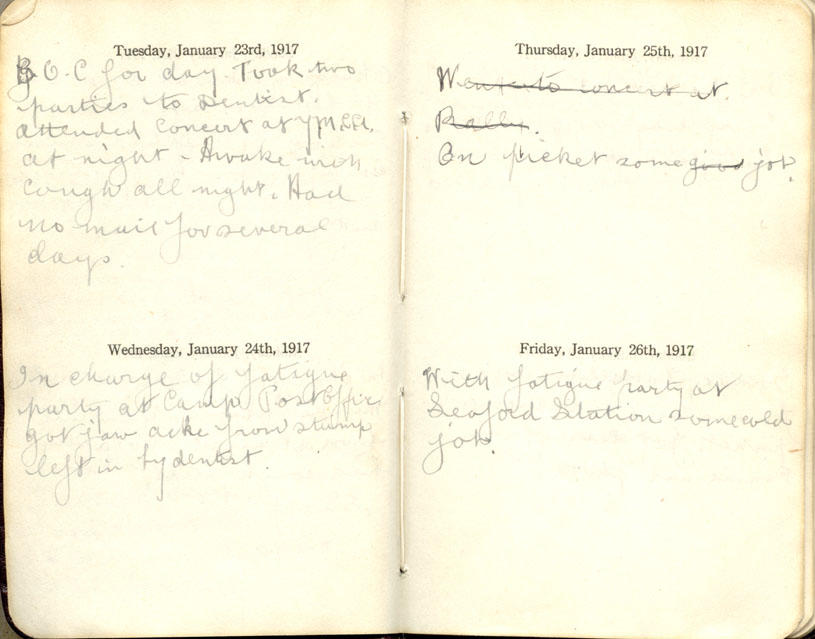 Tuesday, January 23rd, 1917
B.O.C for day. Took two
parties to Dentist.
attended Concert at YMCA.
at night - Awake with
Cough all night. Had
no mail for several
days.
Wednesday, January 24th, 1917
In charge of fatigue
party at Camp Post Office
got jaw ache from stump
left in by dentist.
Thursday, January 25th, 1917
Went to concert at
Rally.
On picket some good job.
Friday, January 26th, 1917
With fatigue party at
Seaford Station some cold
job.